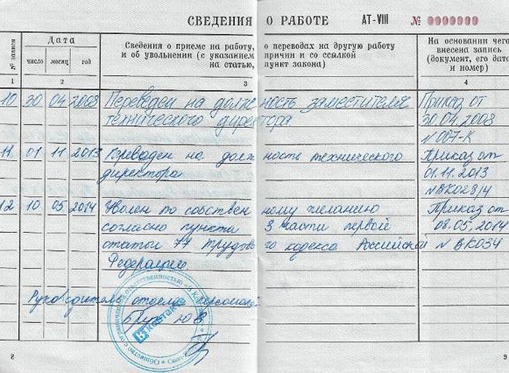 СВЕДЕНИЯ О РАБОТЕ АТ-VIII № 0000000
№ записи
Дата
число месяц год
Сведения о приеме на работу, о переводах на другую работу
и об увольнении (с указанием причин и со ссылкой
на статью, пункт закона)
На основании чего
внесена запись
(документ, его дата
и номер)
1 2 3 4
10 30 04 2008 Переведен на должность заместителя
технического директора
Приказ от
30.04.2008
№007-К
11 01 11 2013 Переведен на должность технического
директора
Приказ от
01.11.2013
№ВК028/4
12 10 05 2014 Уволен по собственному желанию
согласно пункта 3 части первой
статьи 77 Трудового кодекса Российской
Федерации
Приказ от
08.05.2014
№ВК034
Руководитель отдела персонала
ВКонтакте
8 9